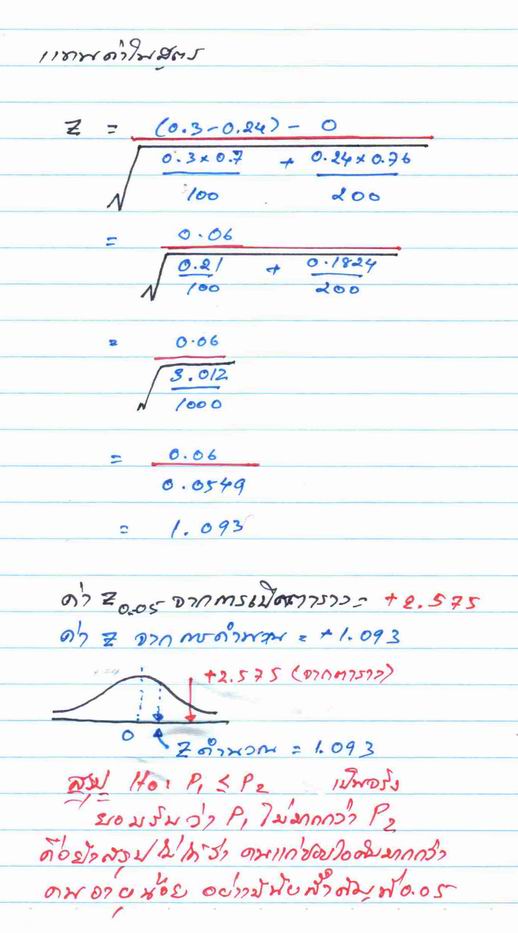 แทนค่าในสูตร
Z = (0.3-0.24) - 0
0.3x0.7 + 0.24x0.76
100 200
= 0.06
0.21 + 0.1824
100 200
= 0.06
3.012
1000
= 0.06
0.0549
= 1.093
ค่า Z0.05 จากการเปิดตาราง = +2.575
ค่า Z จากการคำนวน = +1.093
+2.575 (จากตาราง)
0
Z คำนวณ = 1.093
สรุป Ho: P1 ≤ P2 เป็นจริง
ยอมรับว่า P1 ไม่มากกว่า P2
คือยังสรุปไม่ได้ว่า คนแก่ชอบใจมากกว่า
คนอายุน้อย อย่างมีนัยสำคัญที่0.05